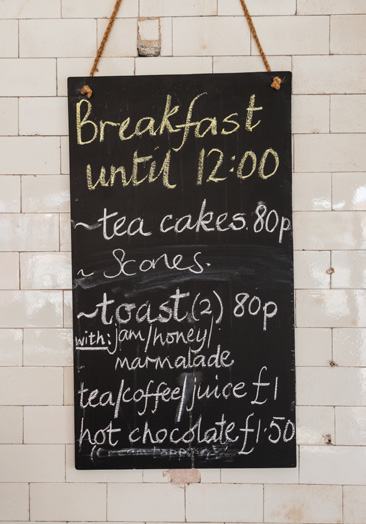 Breakfast
until 12:00
~tea cakes. 80p
~ Scones.
~toast (2) 80p
with: jam/honey/
marmalade
tea/coffee/juice £1
hot chocolate £1.50